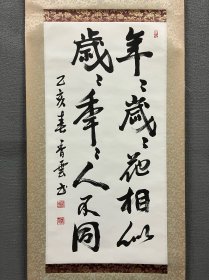 年〻歲〻花相似
歲〻年〻人不同
乙亥春香雲书